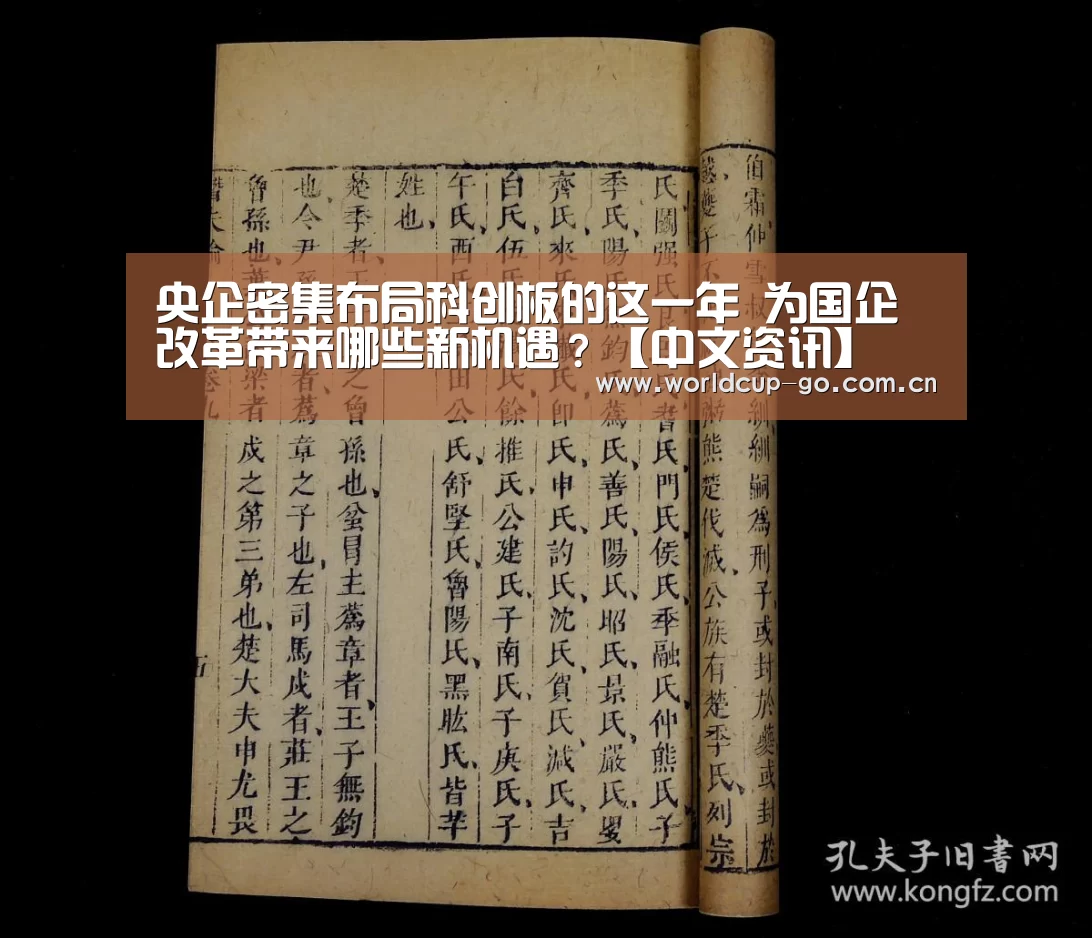 伯霜仲雪叔紃紃嗣為刑子或封於夔或封於
熊楚伐滅公族有楚季氏列宗
氏鬬强氏耆氏門氏侯氏季融氏仲熊氏子
季氏陽氏鈞氏蒍氏善氏陽氏昭氏景氏嚴氏
齊氏來氏氏即氏申氏訋氏沈氏賀氏減氏吉
白氏伍氏氏餘推氏公建氏子南氏子庚氏子
午氏西氏田公氏舒堅氏魯陽氏黑肱氏皆芈
姓也
楚季者王之曾孫也蚠冒主蒍章者王子無鈞
也令尹孫者蒍章之子也左司馬戍者莊王之
魯孫也葉梁者戍之第三弟也楚大夫申尤畏
潛夫論卷九
央企密集布局科创板的这一年 为国企
改革带来哪些新机遇？【中文资讯】
www.worldcup-go.com.cn
孔夫子旧書网
www.kongfz.com